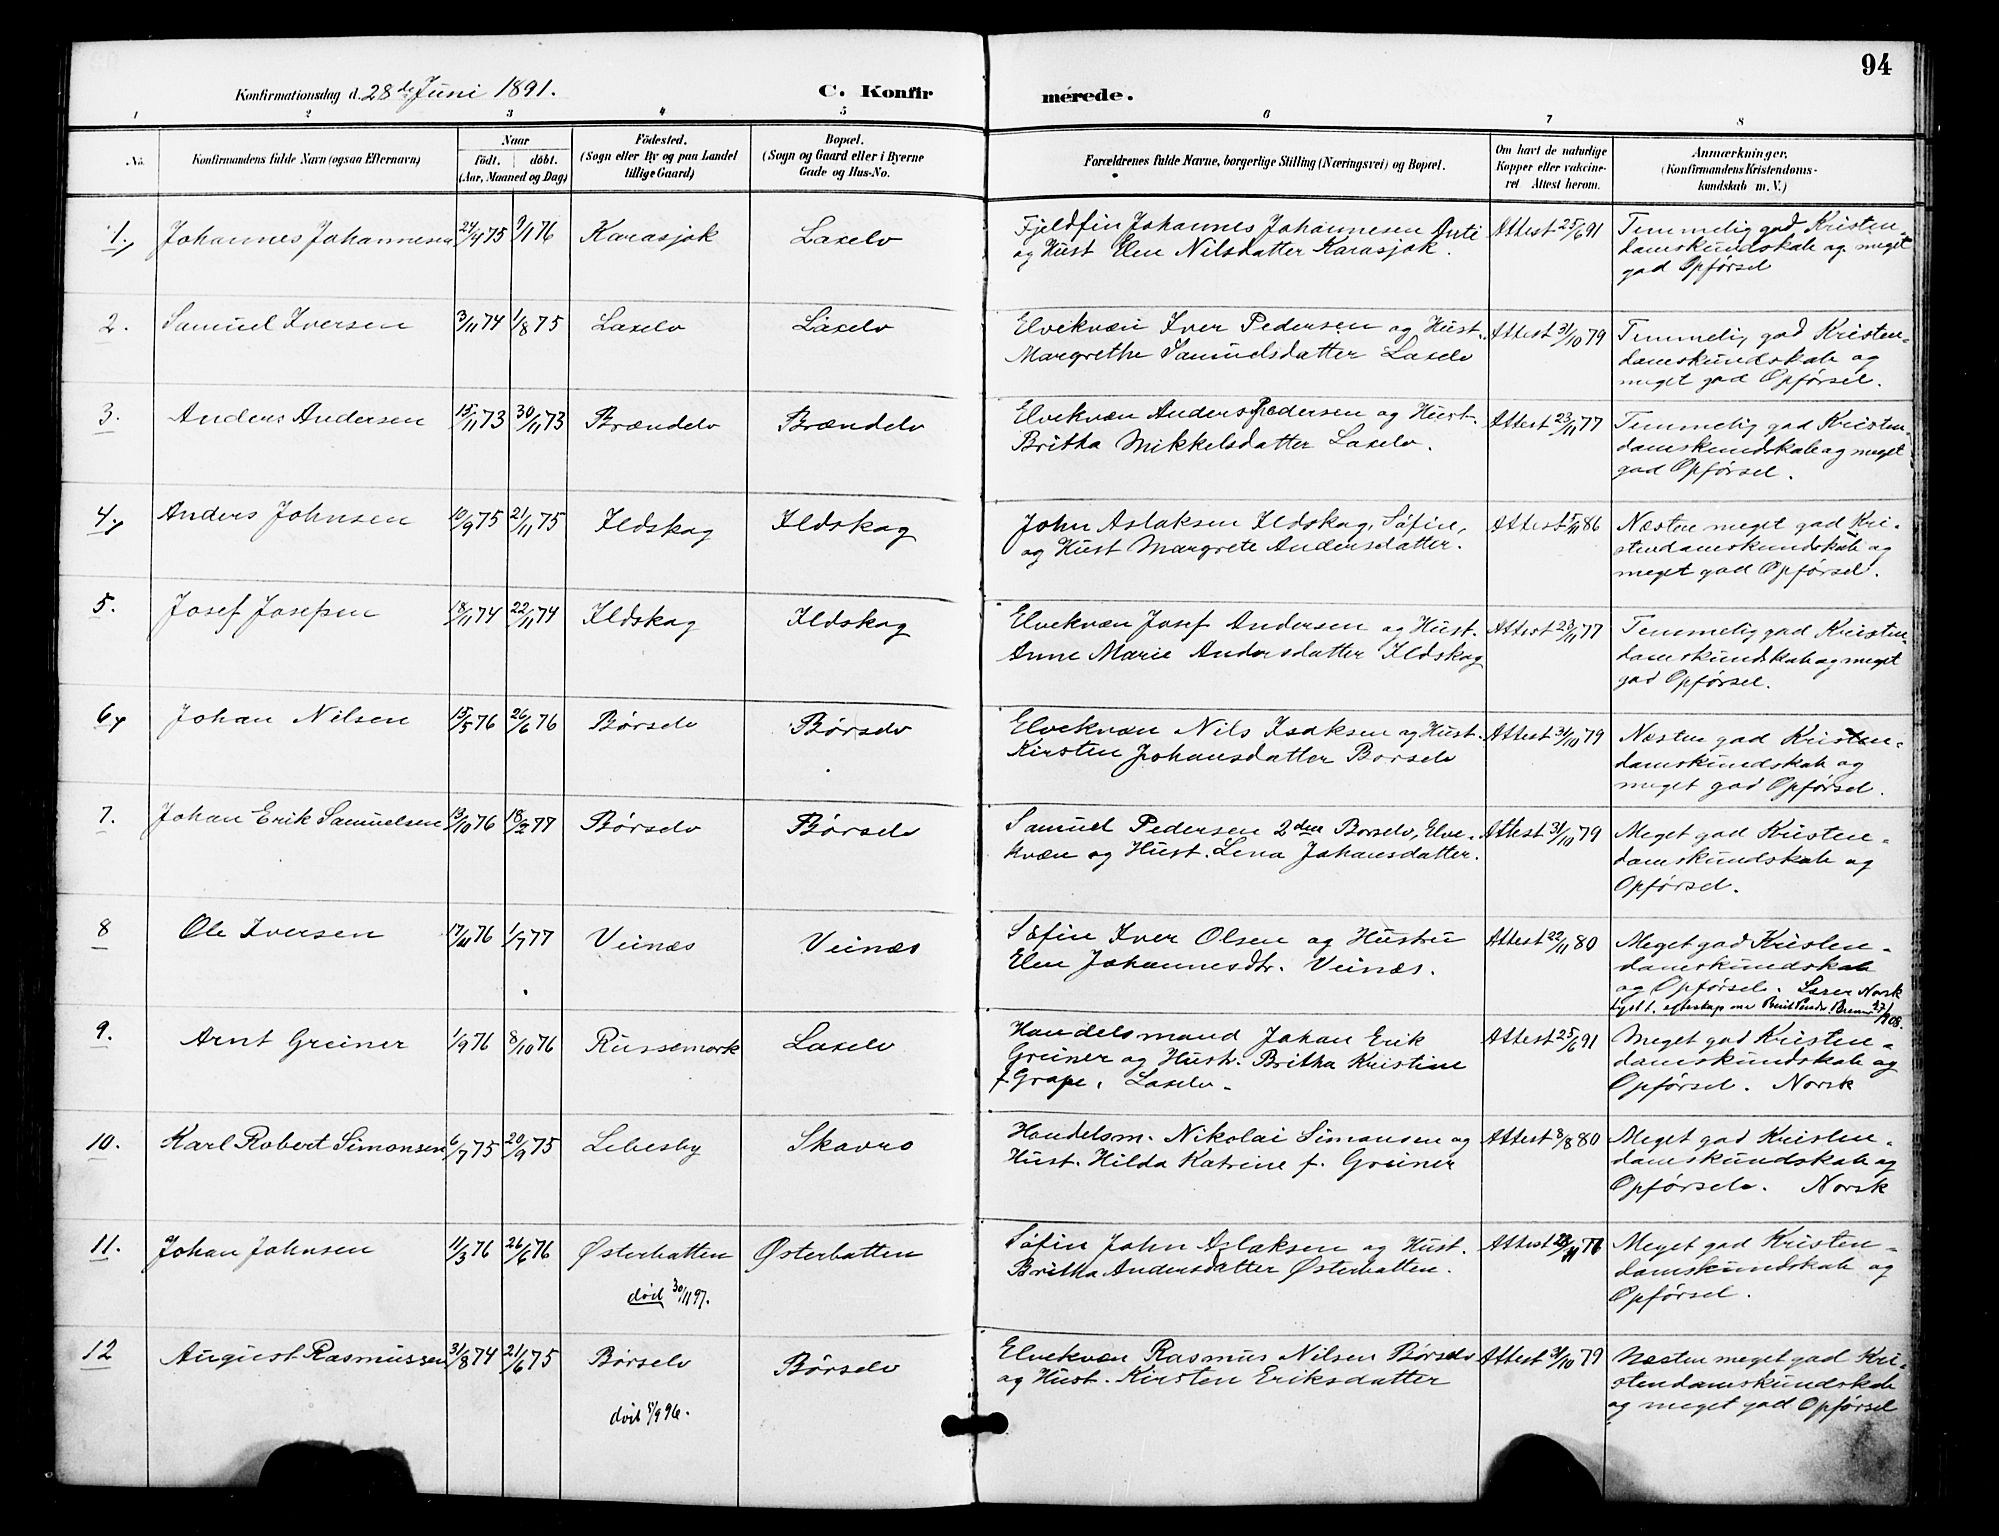 94
Konfirmationsdag d. 28de Juni 1891.
C. Konfirmerede.
1 2 3 4 5 6 7 8
No. Konfirmandens fulde Navn (ogsaa Efternavn) Naar födt. döbt. (Aar, Maaned og Dag) Födested. (Sogn eller By og paa Landet tillige Gaard) Bopæl. (Sogn og Gaard eller i Byerne Gade og Hus-No. Forældrenes fulde Navne, borgerlige Stilling (Næringsvei) og Bopæl. Om havt de naturlige Kopper eller vakcineret Attest herom. Anmærkninger. (Konfirmandens Kristendomskundskab m. V.)
1. Johannes Johannesen 24/4 75 9/1 76 Karasjok Laxelv Fjeldfin Johannes Johannesen Anti Attest 25/6 91 Temmelig god Kristen-
og Hust Elen Nilsdatter Karasjok. domskundskab og meget
god Opførsel
2. Samuel Iversen 3/11 74 1/8 75 Laxelv Laxelv Elvekvæn Iver Pedersen og Hust. Attest 31/10 79 Temmelig god Kristen-
Margrethe Samuelsdatter Laxelv domskundskab og
meget god Opførsel.
3. Anders Andersen 15/11 73 30/11 73 Brændelv Brændelv Elvekvæn Anders Pedersen og Hust. Attest 23/11 77 Temmelig god Kristen-
Britha Mikkelsdatter Laxelv. domskundskab og meget
god Opførsel.
4. Anders Johnsen 10/9 75 21/11 75 Ildskog Ildskog John Aslaksen Ildskog, Søfin, Attest 5/11 86 Næsten meget god Kri-
og Hust Margrete Andersdatter. stendomskundskab og
meget god Opførsel.
5. Josef Josefsen 18/11 74 22/11 74 Ildskog Ildskog Elvekvæn Josef Andersen og Hust. Attest 23/11 77 Temmelig god Kristen-
Anne Marie Andersdatter Ildskog domskundskab og meget
god Opførsel.
6. Johan Nilsen 15/5 76 26/6 76 Børselv Børselv Elvekvæn Nils Isaksen og Hust. Attest 31/10 79 Næsten god Kristen-
Kirsten Johansdatter Børselv domskundskab og
meget god Opførsel.
7. Johan Erik Samuelsen 13/10 76 18/2 77 Børselv Børselv Samuel Pedersen 2den Børselv, Elve- Attest 31/10 79 Meget god Kristen-
kvæn og Hust. Lena Johansdatter. domskundskab og
Opførsel.
8 Ole Iversen 17/11 76 1/7 77 Veinæs Veinæs Søfin Iver Olsen og Hustru Attest 22/11 80 Meget god Kristen-
Elen Johannesdtr. Veinæs. domskundskab
og Opførsel. Læser Norsk
9. Arnt Greiner 1/9 76 8/10 76 Russemark Laxelv Handelsmand Johan Erik Attest 25/6 91 Meget god Kristen-
Greiner og Hustr. Britha Kristine domskundskab og
f Grape, Laxelv. Opførsel. Norsk
10. Karl Robert Simonsen 6/7 75 20/9 75 Lebesby Skavro Handelsm. Nikolai Simonsen og Attest 8/8 80 Meget god Kristen-
Hust. Hilda Katrine f. Greiner domskundskab og
Opførsel. Norsk
11. Johan Johnsen 11/3 76 26/6 76 Østerbotten Østerbotten Søfin John Aslaksen og Hust. Attest 76 Meget god Kristen-
Britha Andersdatter Østerbotten. domskundskab og
død 30/11 97. Opførsel.
12 August Rasmussen 31/8 74 21/6 75 Børselv Børselv Elvekvæn Rasmus Nilsen Børselv Attest 31/10 79 Næsten meget god Kri-
og Hust. Kirsten Eriksdatter stendomskundskab
død 8/9 96. og meget god Opførsel